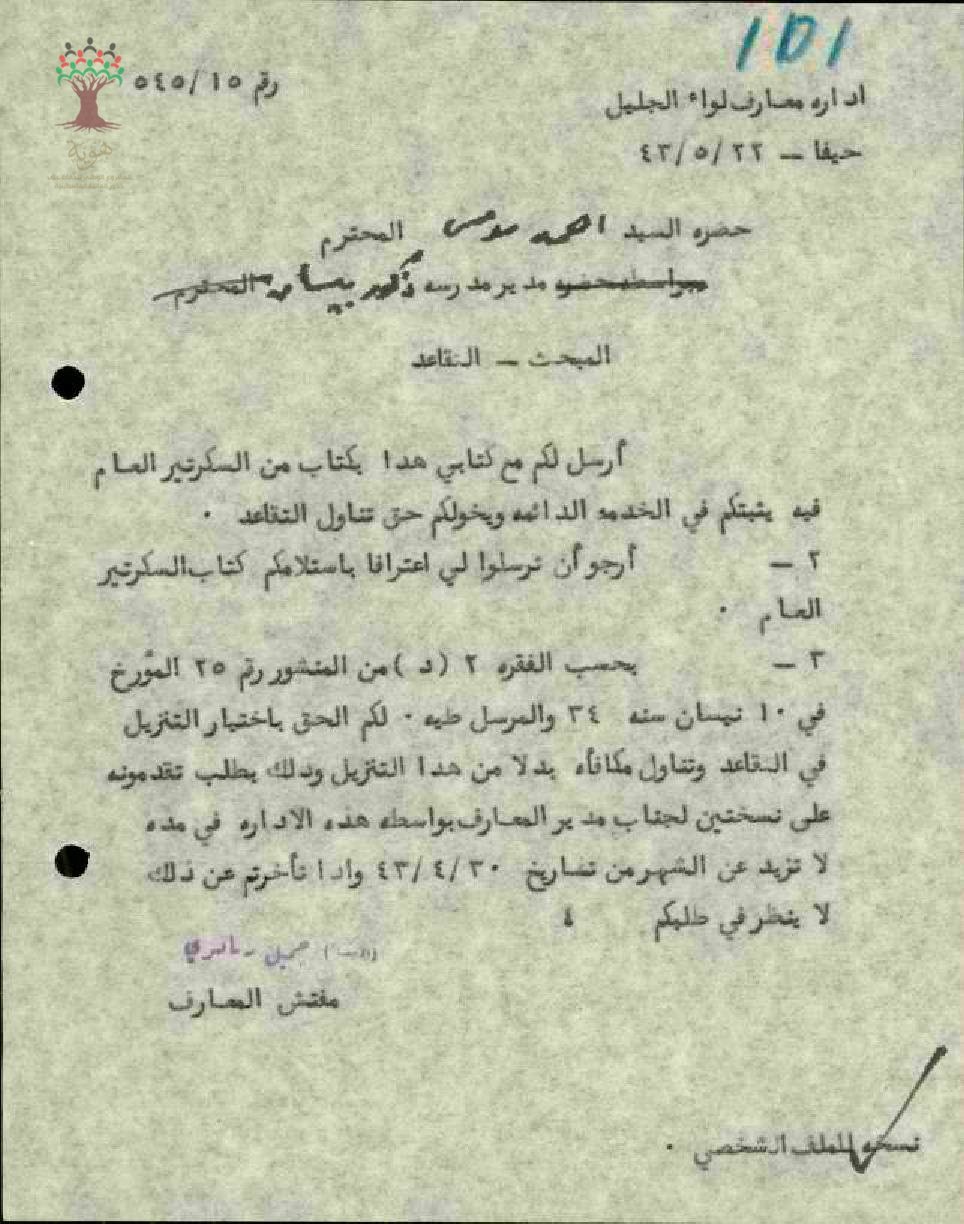 101
رقم ٥٤٥/١٥
اداره معارف لواء الجليل
حيفا – ٤٣/٥/٢٢
هوية
حضره السيد احمد موسى المحترم
بواسطه حضره مدير مدرسه ذكور بيسان المحترم
المبحث – التقاعد
أرسل لكم مع كتابي هدا بكتاب من السكرتير العام
فيه يثبتكم في الخدمه الدائمه ويخولكم حق تناول التقاعد ٠
٢ – أرجو أن ترسلوا لي اعترافا باستلامكم كتاب السكرتير
العام ٠
٣ – بحسب الفقره ٢ (د) من المنشور رقم ٢٥ المؤرخ
في ١٠ نيسان سنه ٣٤ والمرسل طيه ٠ لكم الحق باختيار التنزيل
في التقاعد وتناول مكافأه بدلا من هدا التنزيل ودلك بطلب تقدمونه
على نسختين لجناب مدير المعارف بواسطه هذه الاداره في مده
لا تزيد عن الشهر من تصاريخ ٤٣/٤/٣٠ وادا تأخرتم عن ذلك
لا ينظر في طلبكم ٤
جميل
مفتش المعارف
نسخه للملف الشخصي ٠